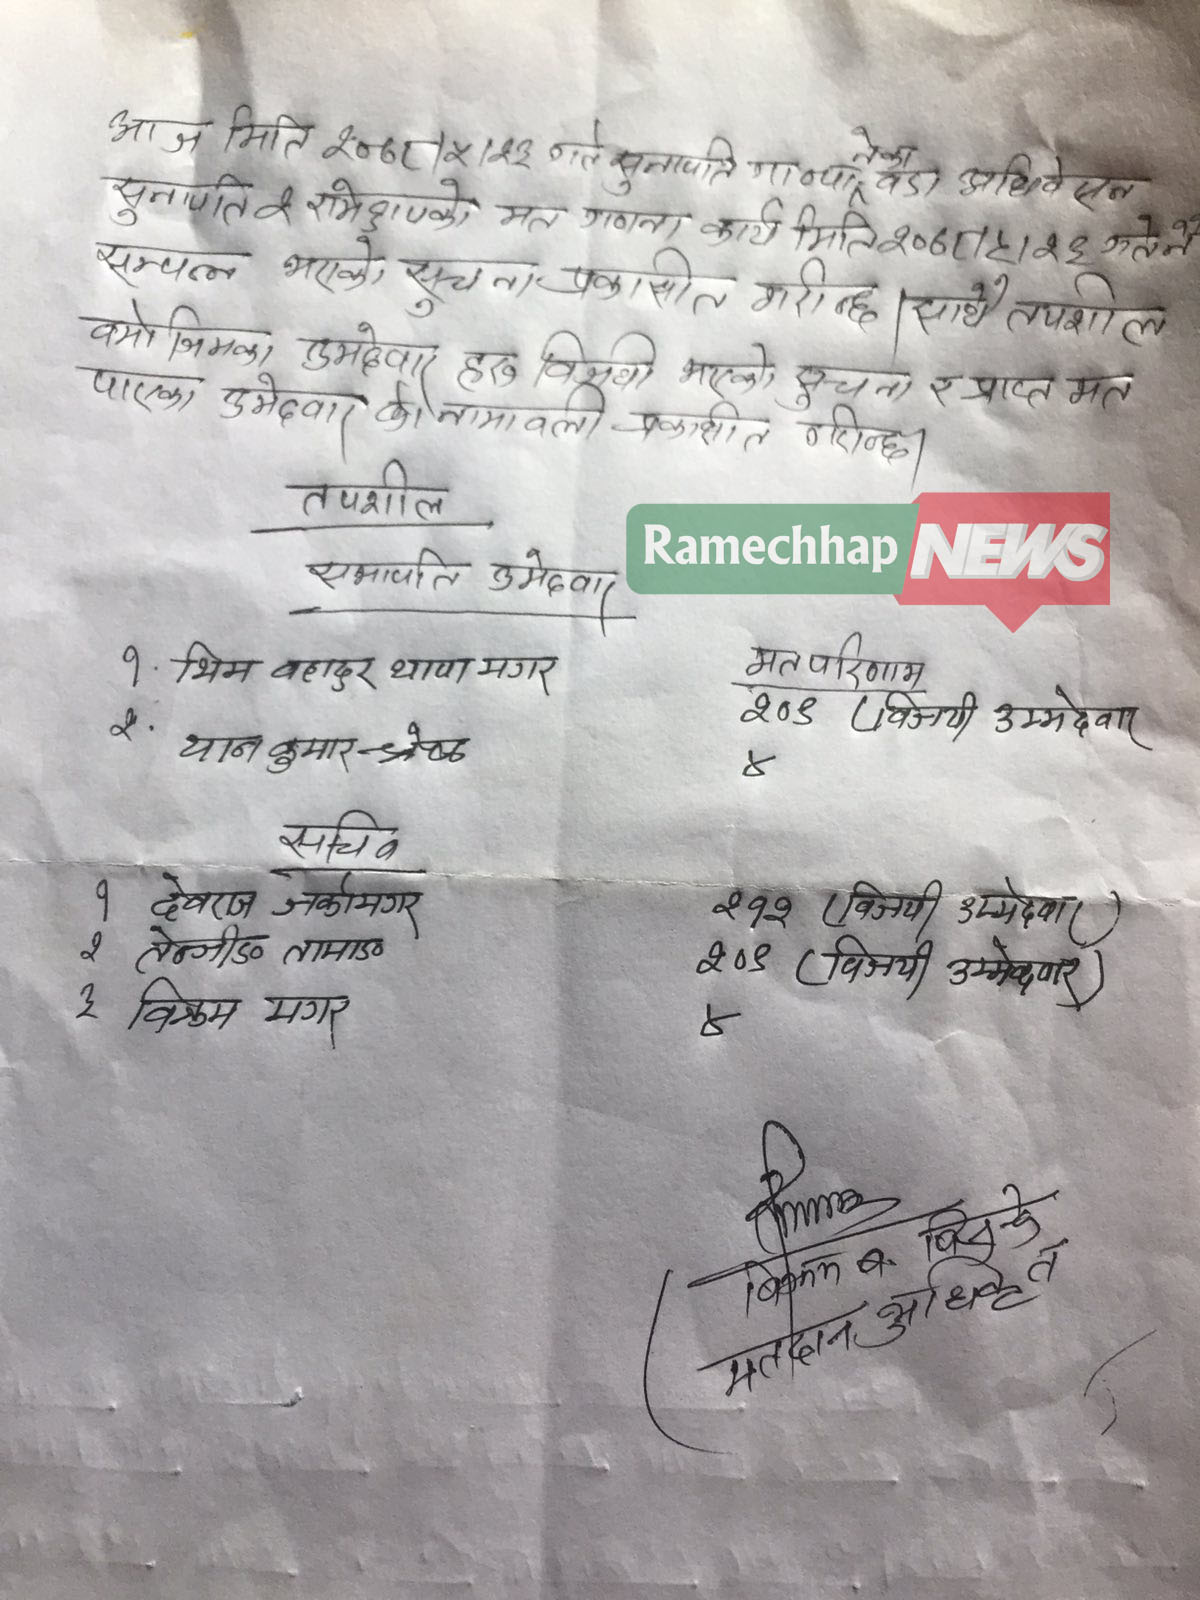 आज मिति २०७८।५।२३ गते सुनापति गा०पा, नेका वडा अधिवेसन
सुनापति २ रामेछापको मत गणना कार्य मिति २०७८।५।२३ गते नै
सम्पन्न भएको सुचना प्रकासीत गरीन्छ। साथै तपशील
वमोजिमका उमेदवार हरु विजयी भएको सुचना र प्राप्त मत
पाएका उमेदवार को नामावली प्रकाशीत गरीन्छ।
तपशील
Ramechhap NEWS
सभापति उमेदवार
मत परिणाम
१. भिम वहादुर थापा मगर २०९ (विजयी उम्मेदवार
२. यान कुमार श्रेष्ठ ४
सचिव
१ देवराज जर्कामगर २१२ (विजयी उम्मेदवार)
२ तेन्जीङ तामाङ २०९ (विजयी उम्मेदवार)
३ विक्रम मगर ४
(बिक्रम ब.
मतदान अधिकृत)